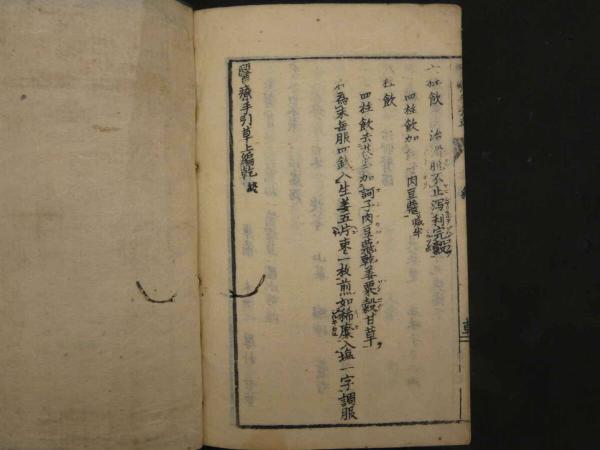 六柱飲 治滑脱不止瀉利完穀
四柱飲加 肉豆蔻 減半
柱飲
四柱飲去 加訶子肉豆蔻乾姜粟殻甘草
為末毎服四銭入生姜五片棗一枚煎如稀糜入塩一字調服
醫療手引草上編乾終